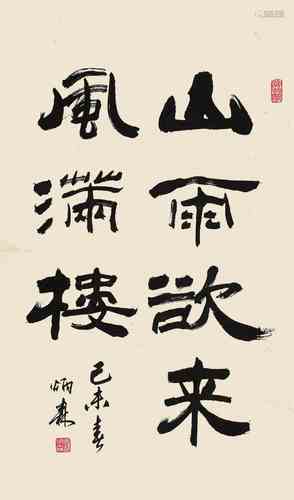 山雨欲来
風滿樓
己未春
炳森